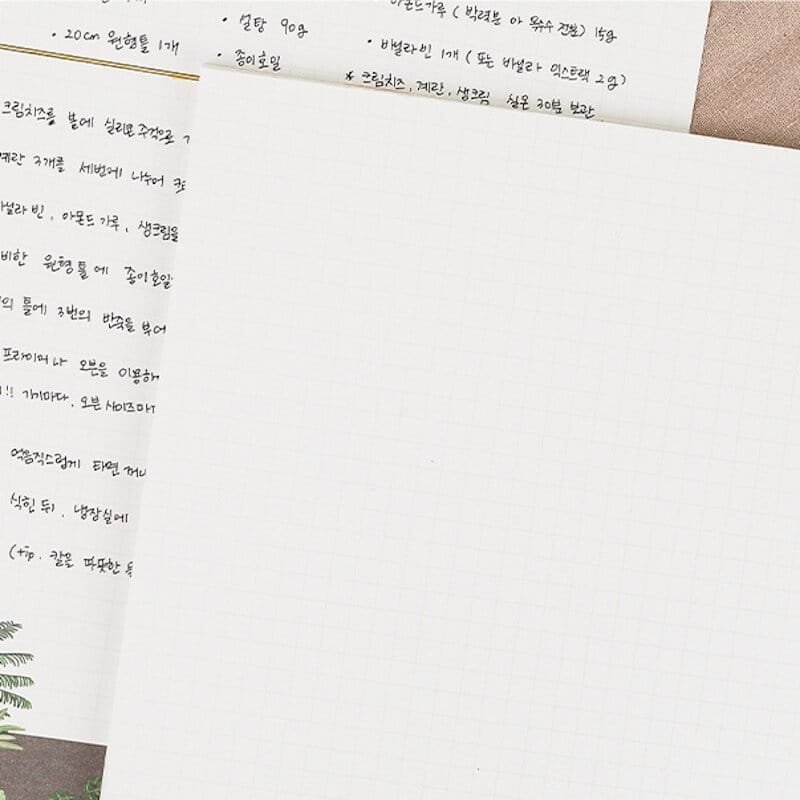 · 20cm 원형틀 1개
· 설탕 90g
· 종이호일
아몬드가루 ( 박력분 or 옥수수 전분 ) 15g
· 바닐라빈 1개 ( 또는 바닐라 익스트랙 2g )
* 크림치즈, 계란, 생크림 실온 30분 보관
크림치즈를 볼에 실리콘주걱으로
계란 3개를 세번에 나누어
바닐라빈, 아몬드가루, 생크림을
비한 원형틀에 종이호일
의 틀에 3번의 반죽을 부어
프라이어나 오븐을 이용하
!! 기기마다, 오븐 사이즈마다
먹음직스럽게 타면 꺼내
식힌 뒤, 냉장실에
(+tip. 칼을 따뜻한